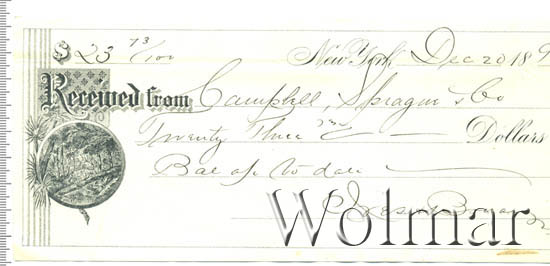 $ 23 73/100
New York, Dec 20 189
Received from Campbell, Sprague & Co
Twenty Three 73/ Dollars
Bal a/c to date
Wolmar